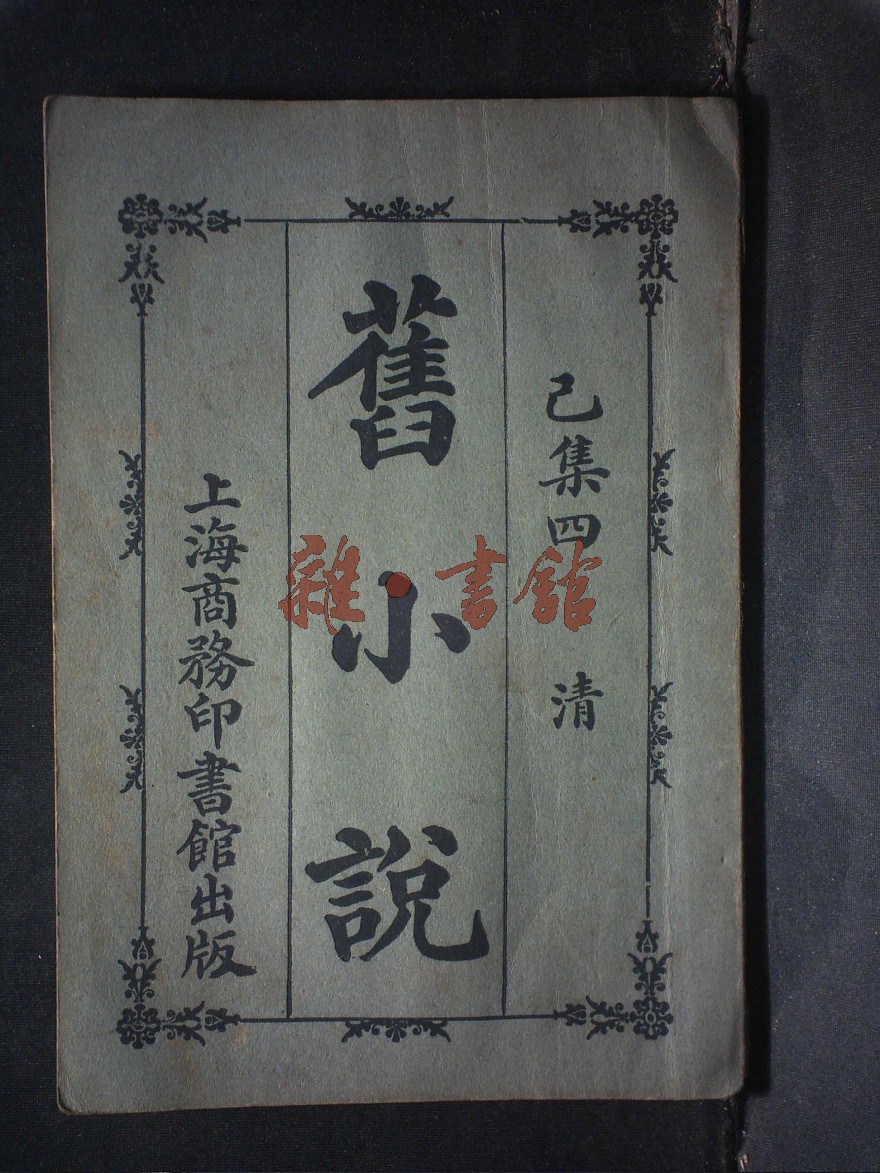 己集四 清
舊小說
上海商務印書館出版
雜·書館